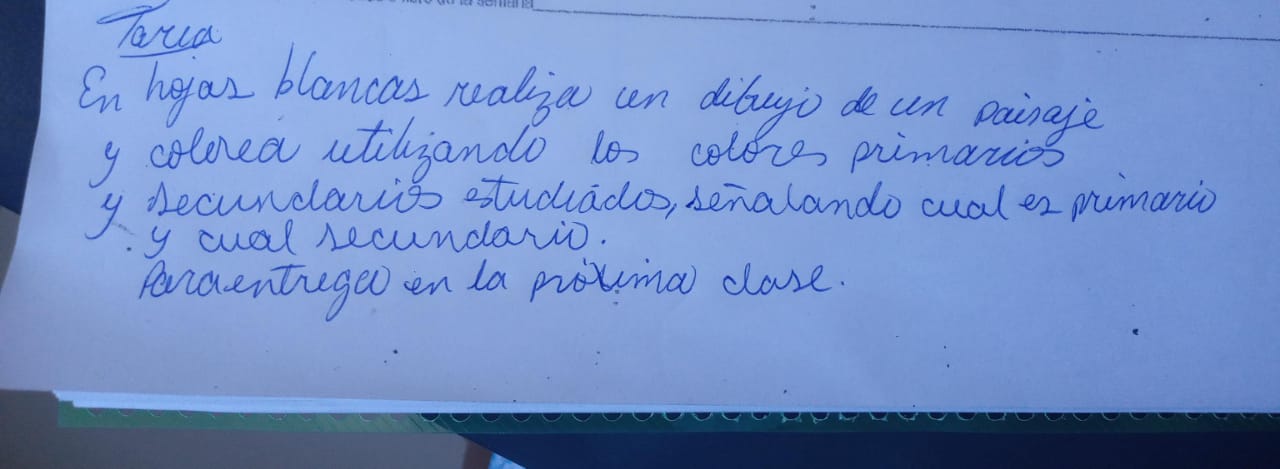 de la semana
Tarea
En hojas blancas realiza un dibujo de un paisaje
y colorea utilizando los colores primarios
y secundarios estudiados, señalando cual es primario
y cual secundario.
Para entrega en la próxima clase.